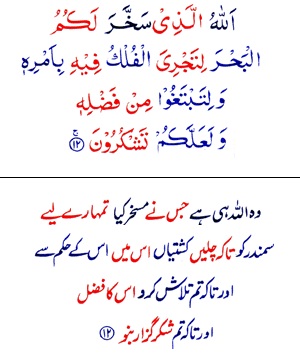 اَللّٰهُ الَّذِىْ سَخَّرَ لَكُمُ
الْبَحْرَ لِتَجْرِىَ الْفُلْكُ فِيْهِ بِاَمْرِهٖ
وَ لِتَبْتَغُوْا مِنْ فَضْلِهٖ
وَ لَعَلَّكُمْ تَشْكُرُوْنَ ۚ ﴿۱۲﴾
وہ اللہ ہی ہے جس نے مسخر کیا تمہارے لیے
سمندر کو تاکہ چلیں کشتیاں اس میں اس کے حکم سے
اور تاکہ تم تلاش کرو اس کا فضل
اور تاکہ تم شکر گزار بنو ﴿۱۲﴾